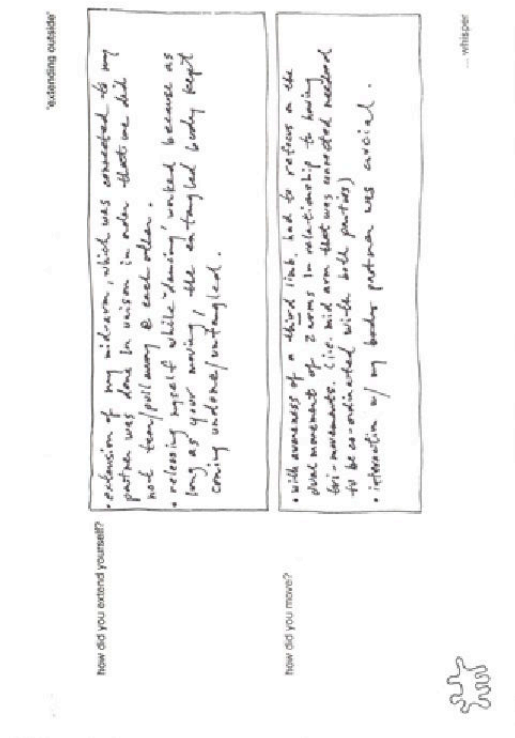 'extending outside'
how did you extend yourself?
• extension of my midarm, which was connected to my
partner was done in unison in order that we did
not tear/pull away @ each other.
• releasing myself while 'dancing' worked because as
long as your moving, the entangled body kept
coming undone/untangled.
how did you move?
• with awareness of a third limb, had to refocus on the
dual movement of 2 arms in relationship to having
tri-movements. (i.e. mid arm that was connected needed
to be co-ordinated with both parties)
• interaction w/ my body partner was crucial.
... whisper